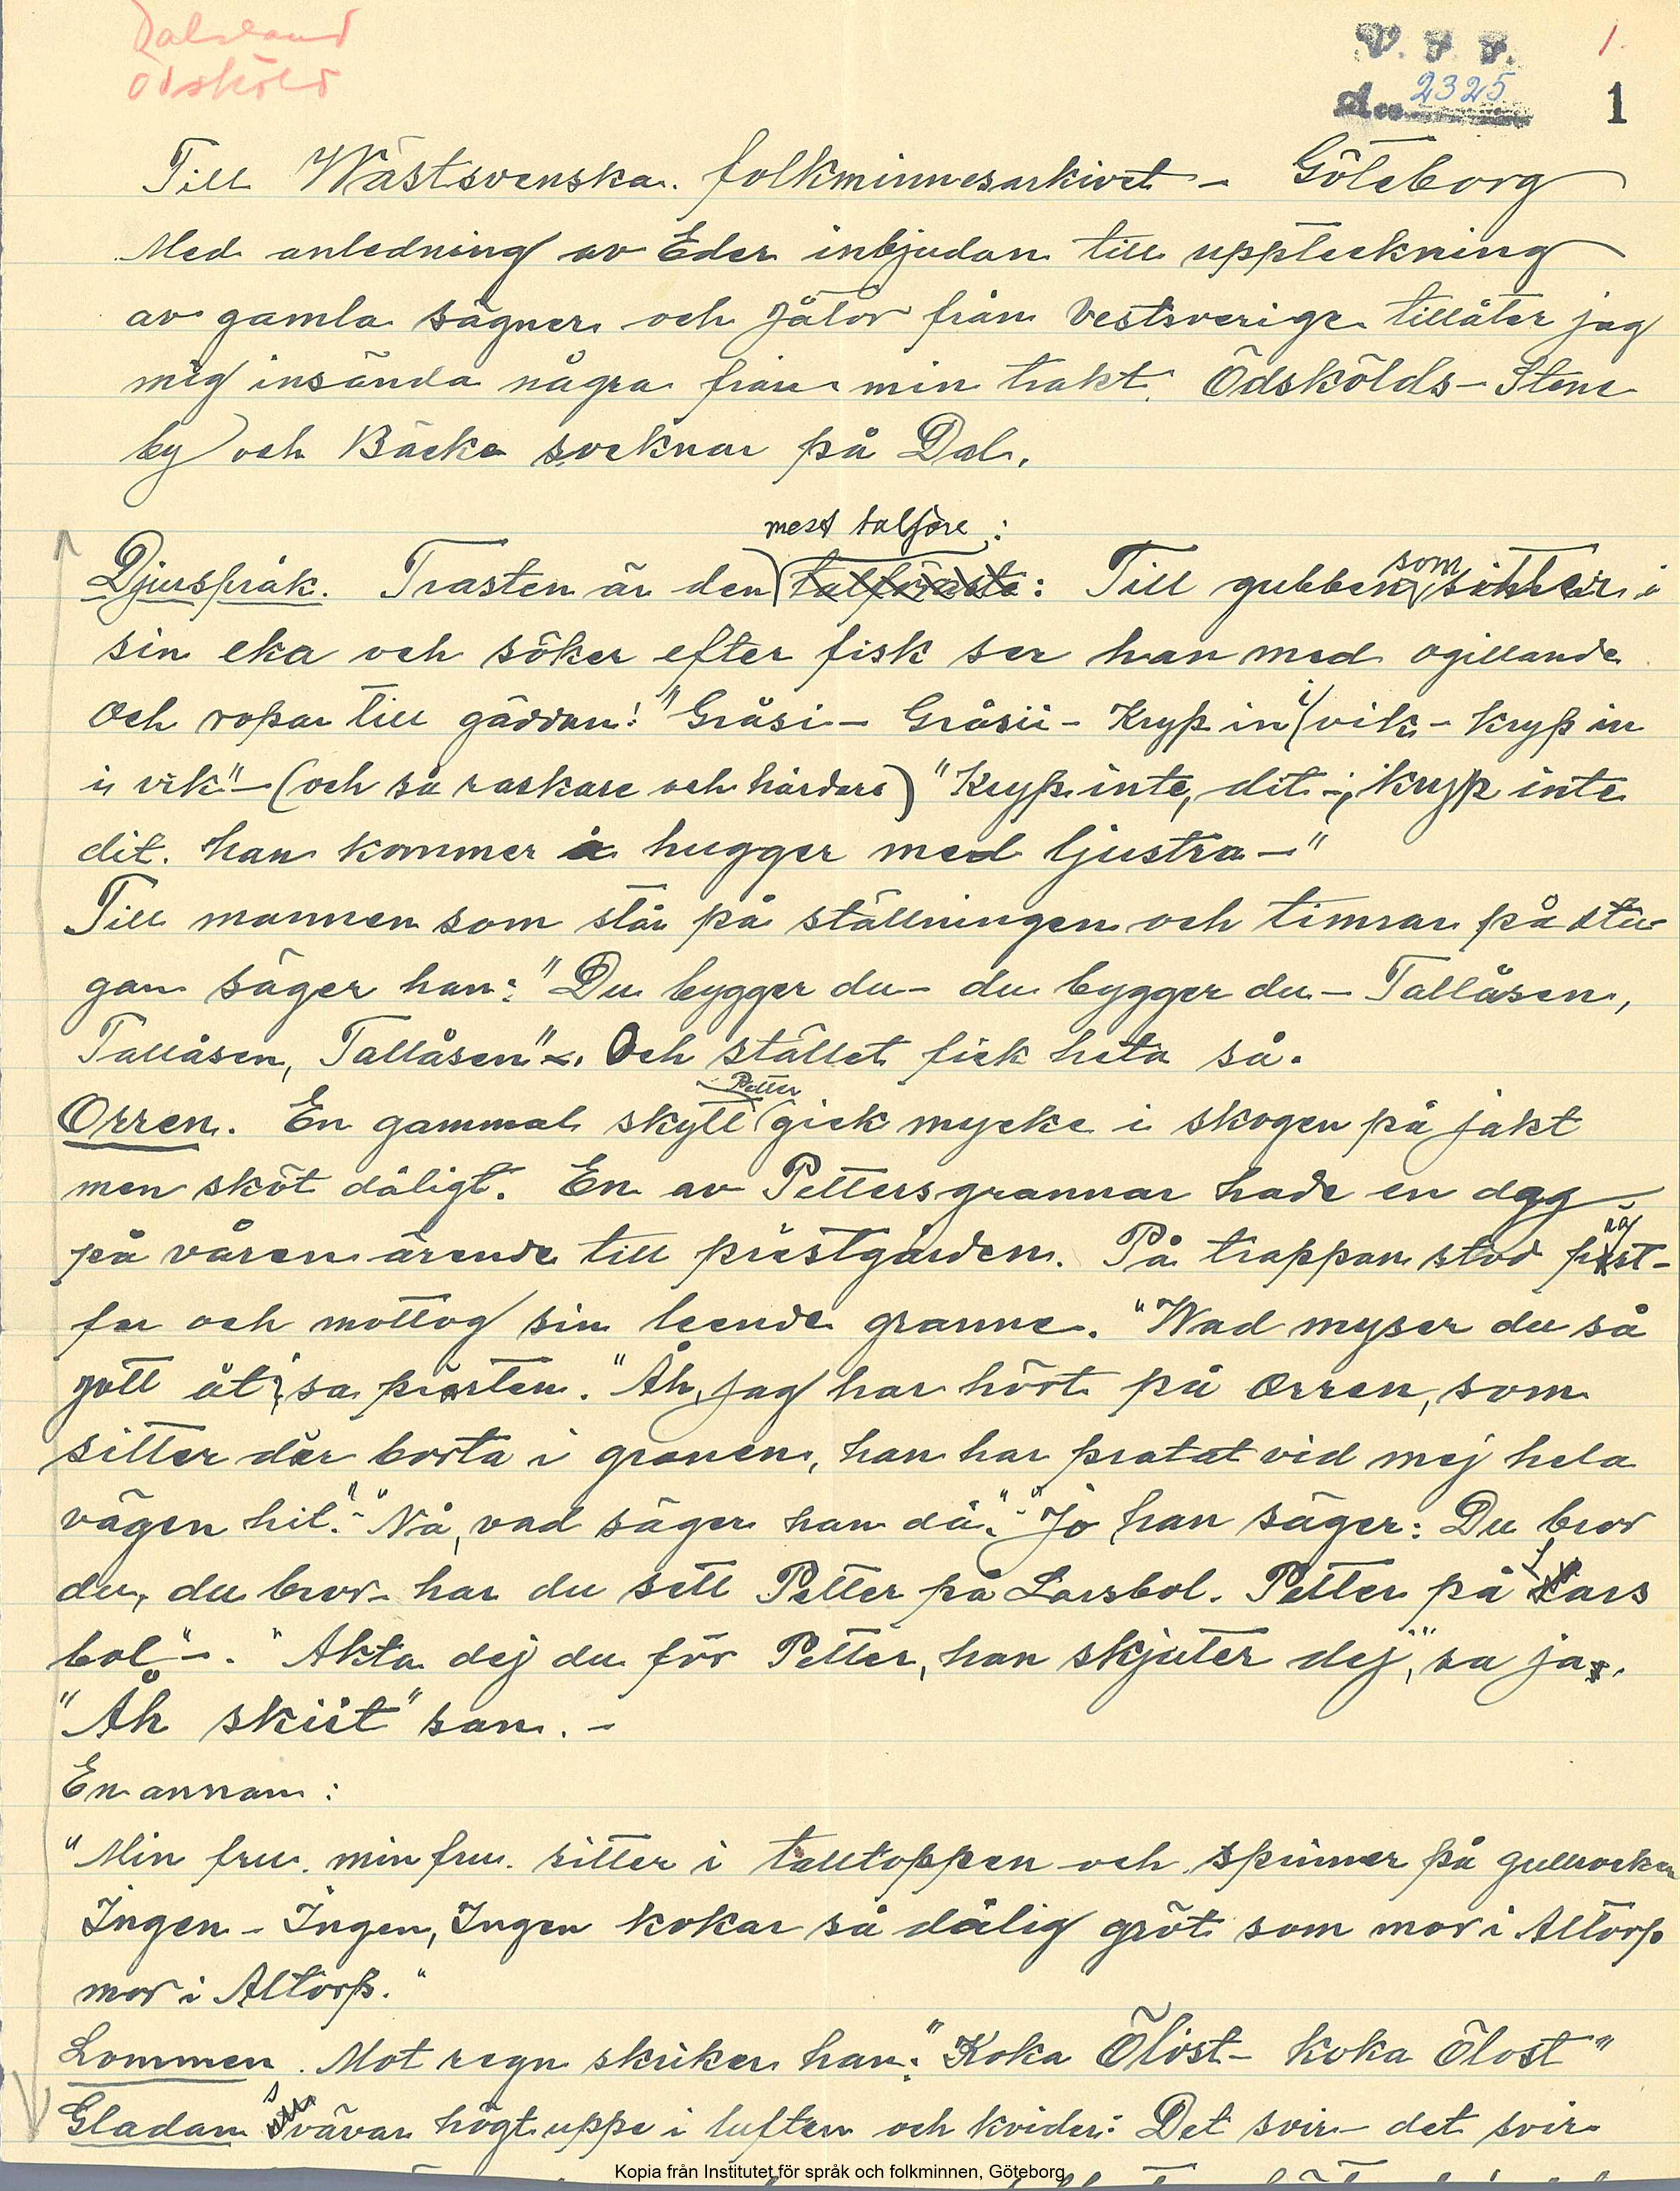 Dalsland
Ödsköld
V. F. F.
d.   2325
1.
1
Till Wästsvenska folkminnesarkivet – Göteborg
Med anledning av Eder inbjudan till uppteckning
av gamla sägner och gåtor från Vestsverige tillåter jag
mig insända några från min trakt. Ödskölds- Stene
by och Bäcke socknar på Dal.
mest talföre :
Djurspråk. Trasten är den talföraste : Till gubben som sitter i
sin eka och söker efter fisk ser han med ogillande
och ropar till gäddan: "Gråsi – Gråsii – Kryp in i vik – kryp in
i vik" – (och så raskare och hårdare) "Kryp inte, dit –, kryp inte
dit. han kommer å hugger med ljustra –"
Till mannen som står på ställningen och timrar på stu-
gan säger han: "Du bygger du – du bygger du – Tallåsen,
Tallåsen, Tallåsen" –. Och stället fick heta så.
Orren. En gammal skytt Petter gick mycke i skogen på jakt
men sköt dåligt. En av Petters grannar hade en dag
på våren ärende till prästgården. På trappan stod präst-
far och mottog sin leende granne. "Wad myser du så
gott åt", sa prästen. "Åh, jag har hört på orren, som
sitter där borta i granen, han har pratat vid mej hela
vägen hit." "Nå, vad säger han då." "Jo han säger: Du bror
du, du bror – har du sett Petter på Larsbol. Petter på Lars
bol" –. "Akta dej du för Petter, han skjuter dej," sa ja.
"Åh skiit" san. –
En annan :
"Min fru. min fru. sitter i talltoppen och spinner på gullrocken
Ingen – Ingen, Ingen kokar så dålig gröt som mor i Altorp
mor i Altorp."
Lommen. Mot regn skriker han: "Koka Ölost – koka ölost"
Gladan svävar högt uppe i luften och kvider: Det svir – det svir
Kopia från Institutet för språk och folkminnen, Göteborg